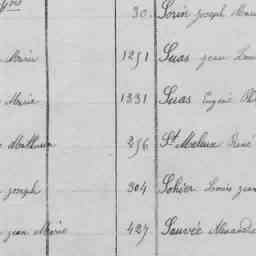 30. Sorin Joseph Marie
Marie 1251 Suas Jean Lou
Marie 1331 Suas Eugène
Mathurin 256 St Meleux René
Joseph 304 Sohier Louis Jean
Jean Marie 427 Souvée Alexandre